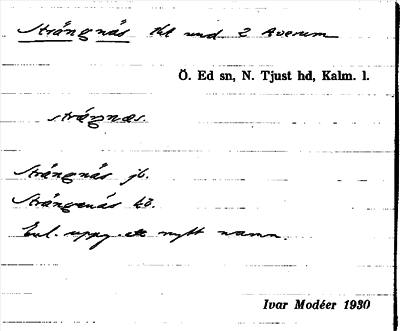 Strängnäs tht und. 2 Averum
Ö. Ed sn, N. Tjust hd, Kalm. l.
strä́ŋnæs.
Strängnäs jb.
Strängenäs kb.
Enl. uppg. ett nytt namn.
Ivar Modéer 1930